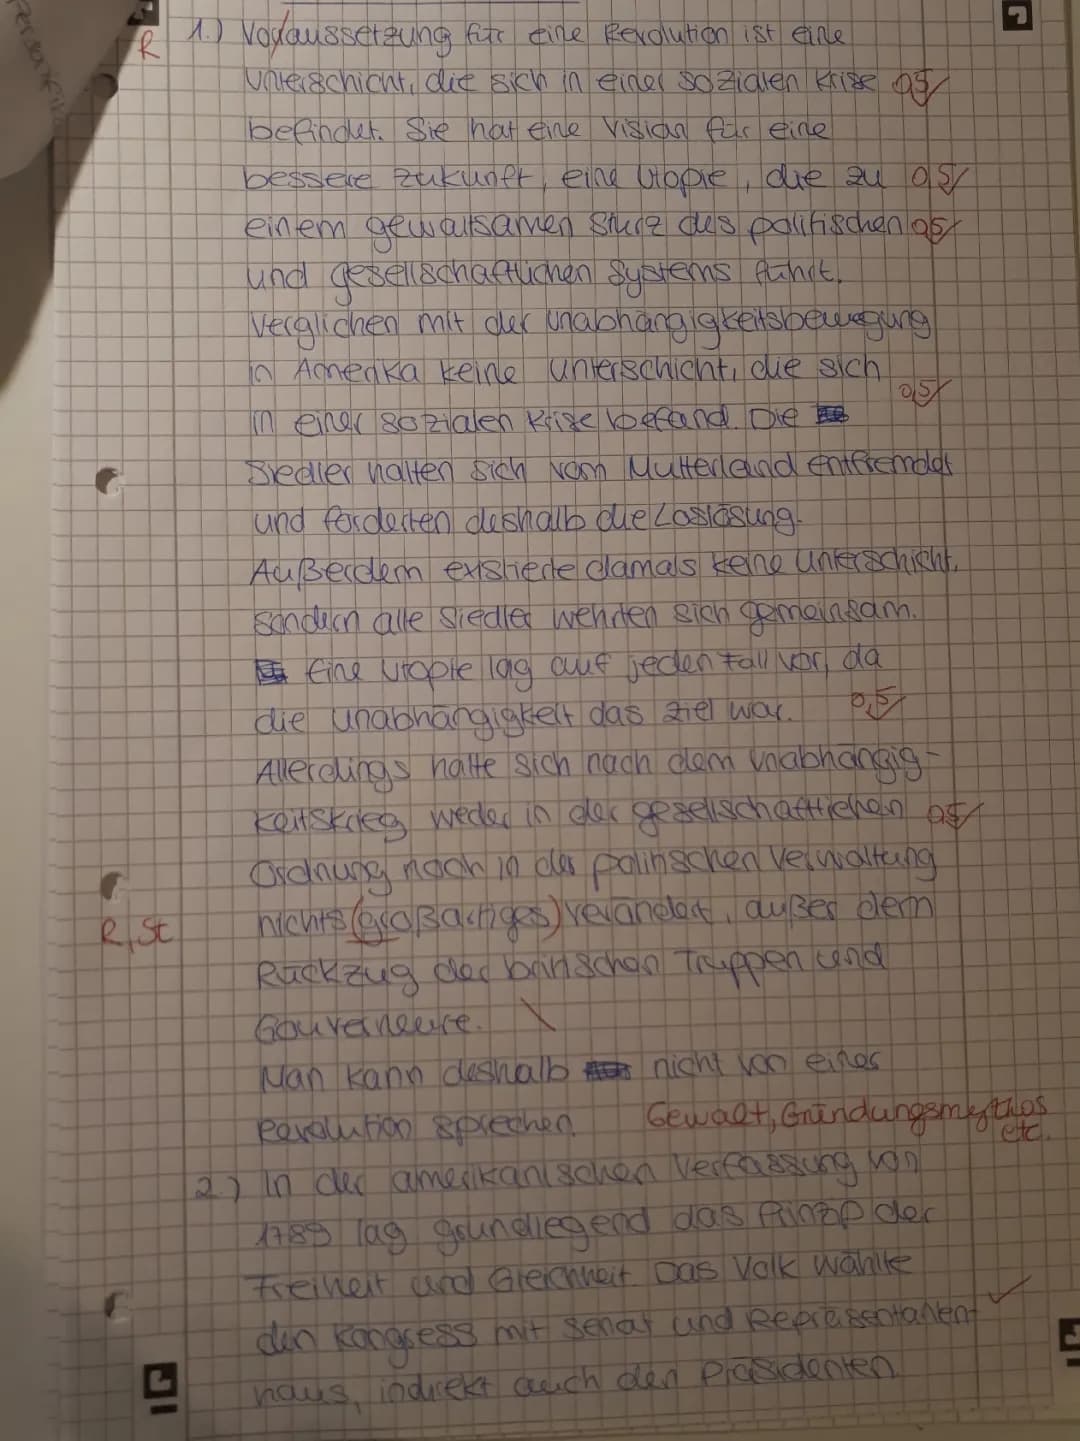 R 1.) Vorausssetzung für eine Revolution ist eine
Unterschicht, die sich in einer sozialen Krise 0,5
befindet. Sie hat eine Vision für eine
bessere Zukunft, eine Utopie, die zu 0,5
einem gewaltsamen Sturz des politischen 0,5
und gesellschaftlichen Systems führt.
Verglichen mit der Unabhängigkeitsbewegung
in Amerika keine Unterschicht, die sich
in einer sozialen Krise befand. Die 0,5
Siedler hatten sich vom Mutterland entfremdet
und forderten deshalb die Loslösung.
Außerdem existierte damals keine Unterschicht,
sondern alle Siedler wehrten sich gemeinsam.
Eine Utopie lag auf jeden Fall vor, da
die Unabhängigkeit das Ziel war. 0,5
Allerdings hatte sich nach dem Unabhängig-
keitskrieg weder in der gesellschaftlichen 0,5
Ordnung noch in der politischen Verwaltung
R, St nichts (großartiges) verändert, außer dem
Rückzug der britischen Truppen und
Gouverneure.
Man kann deshalb nicht von einer
Revolution sprechen. Gewalt, Gründungsmythos
etc.
2) In der amerikanischen Verfassung von
1789 lag grundlegend das Prinzip der
Freiheit und Gleichheit. Das Volk wählte
den Kongress mit Senat und Repräsentanten-
haus, indirekt auch den Präsidenten